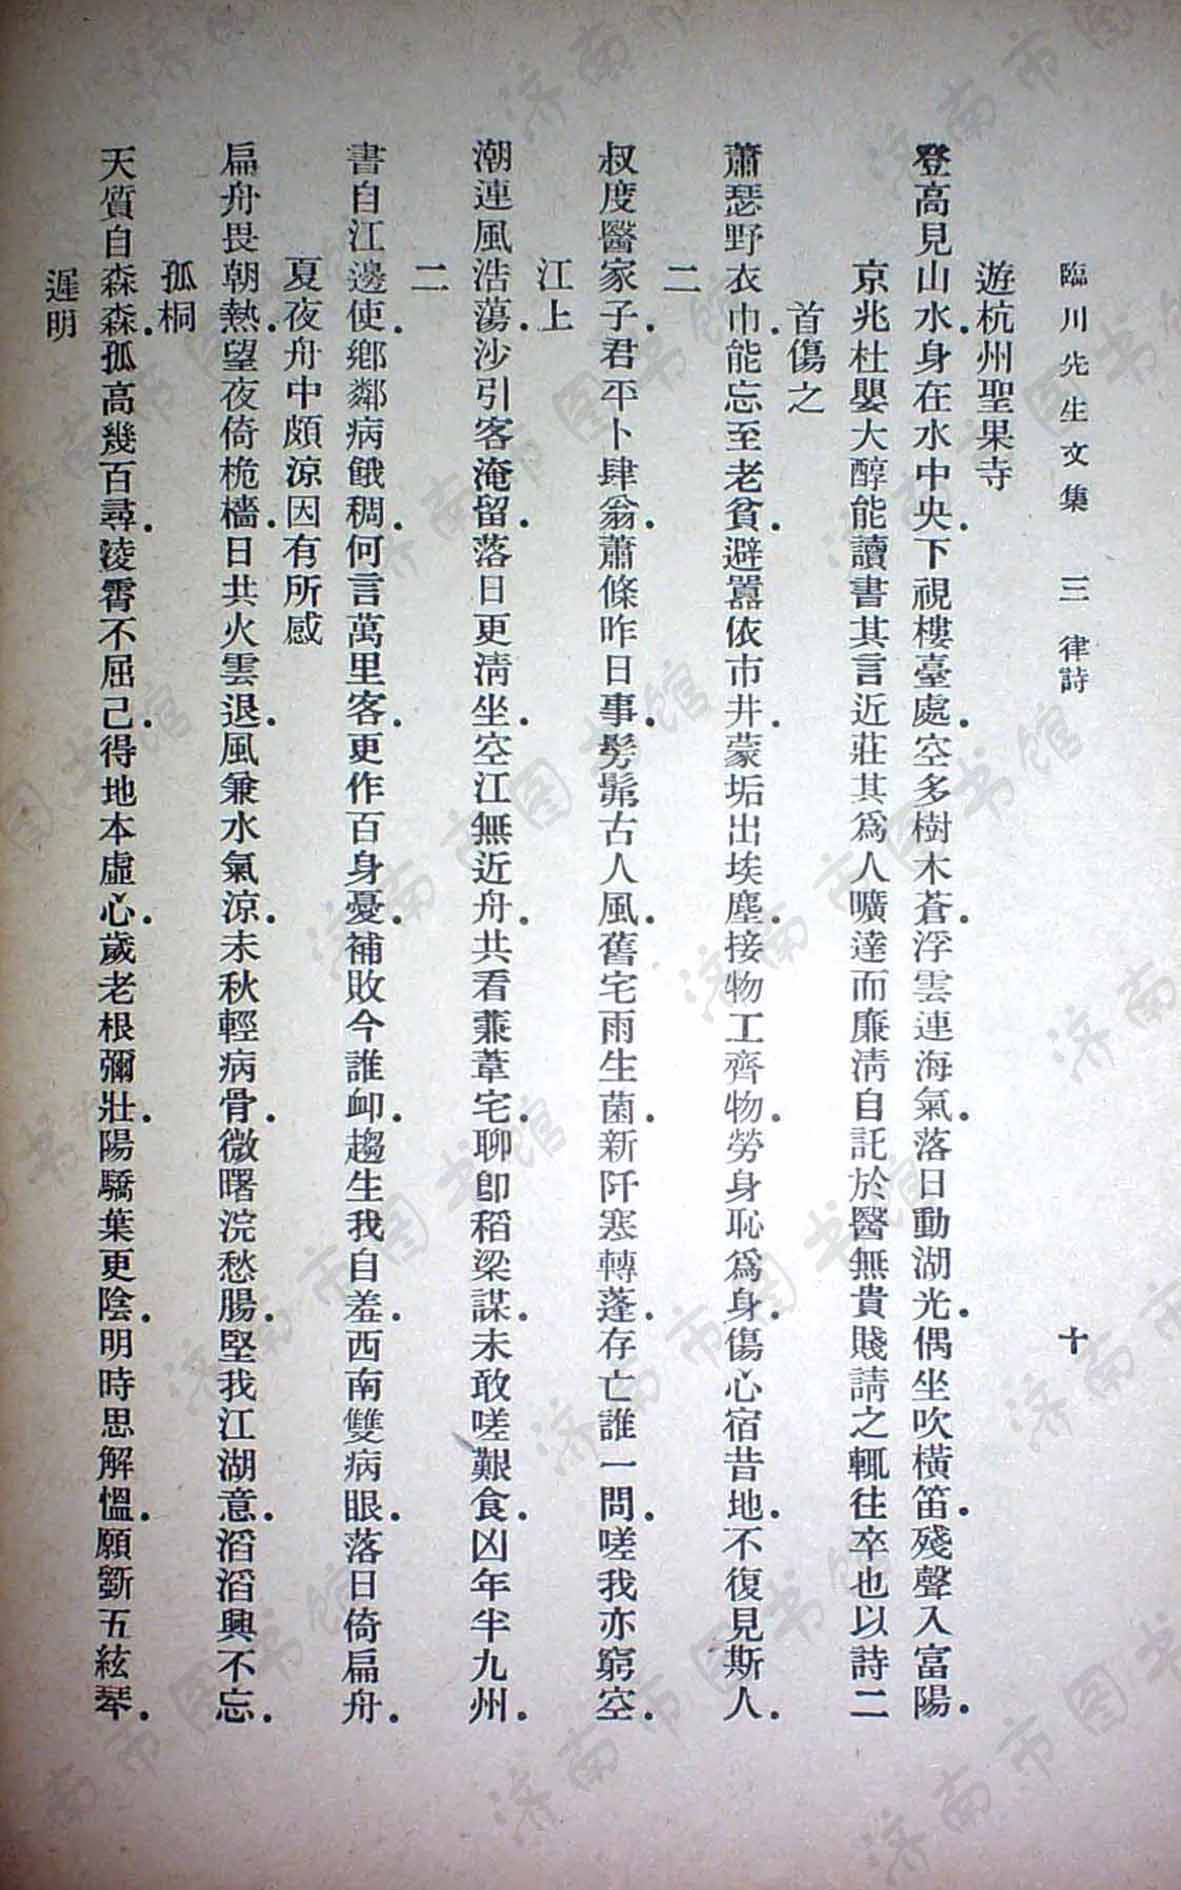 臨川先生文集 三 律詩 十
遊杭州聖果寺
登高見山水.身在水中央.下視樓臺處.空多樹木蒼.浮雲連海氣.落日動湖光.偶坐吹橫笛.殘聲入富陽.
京兆杜嬰大醇能讀書其言近莊其爲人曠達而廉清自託於醫無貴賤請之輒往卒也以詩二
首傷之
蕭瑟野衣巾.能忘至老貧.避囂依市井.蒙垢出埃塵.接物工齊物.勞身恥爲身.傷心宿昔地.不復見斯人.
二
叔度醫家子.君平卜肆翁.蕭條昨日事.髣髴古人風.舊宅雨生菌.新阡寒轉蓬.存亡誰一問.嗟我亦窮空.
江上
潮連風浩蕩.沙引客淹留.落日更清坐.空江無近舟.共看蒹葦宅.聊卽稻粱謀.未敢嗟艱食.凶年半九州.
二
書自江邊使.鄉鄰病餓稠.何言萬里客.更作百身憂.補敗今誰卹.趨生我自羞.西南雙病眼.落日倚扁舟.
夏夜舟中頗涼因有所感
扁舟畏朝熱.望夜倚桅檣.日共火雲退.風兼水氣涼.未秋輕病骨.微曙浣愁腸.堅我江湖意.滔滔興不忘.
孤桐
天質自森森.孤高幾百尋.淩霄不屈己.得地本虛心.歲老根彌壯.陽驕葉更陰.明時思解慍.願斵五絃琴.
遲明